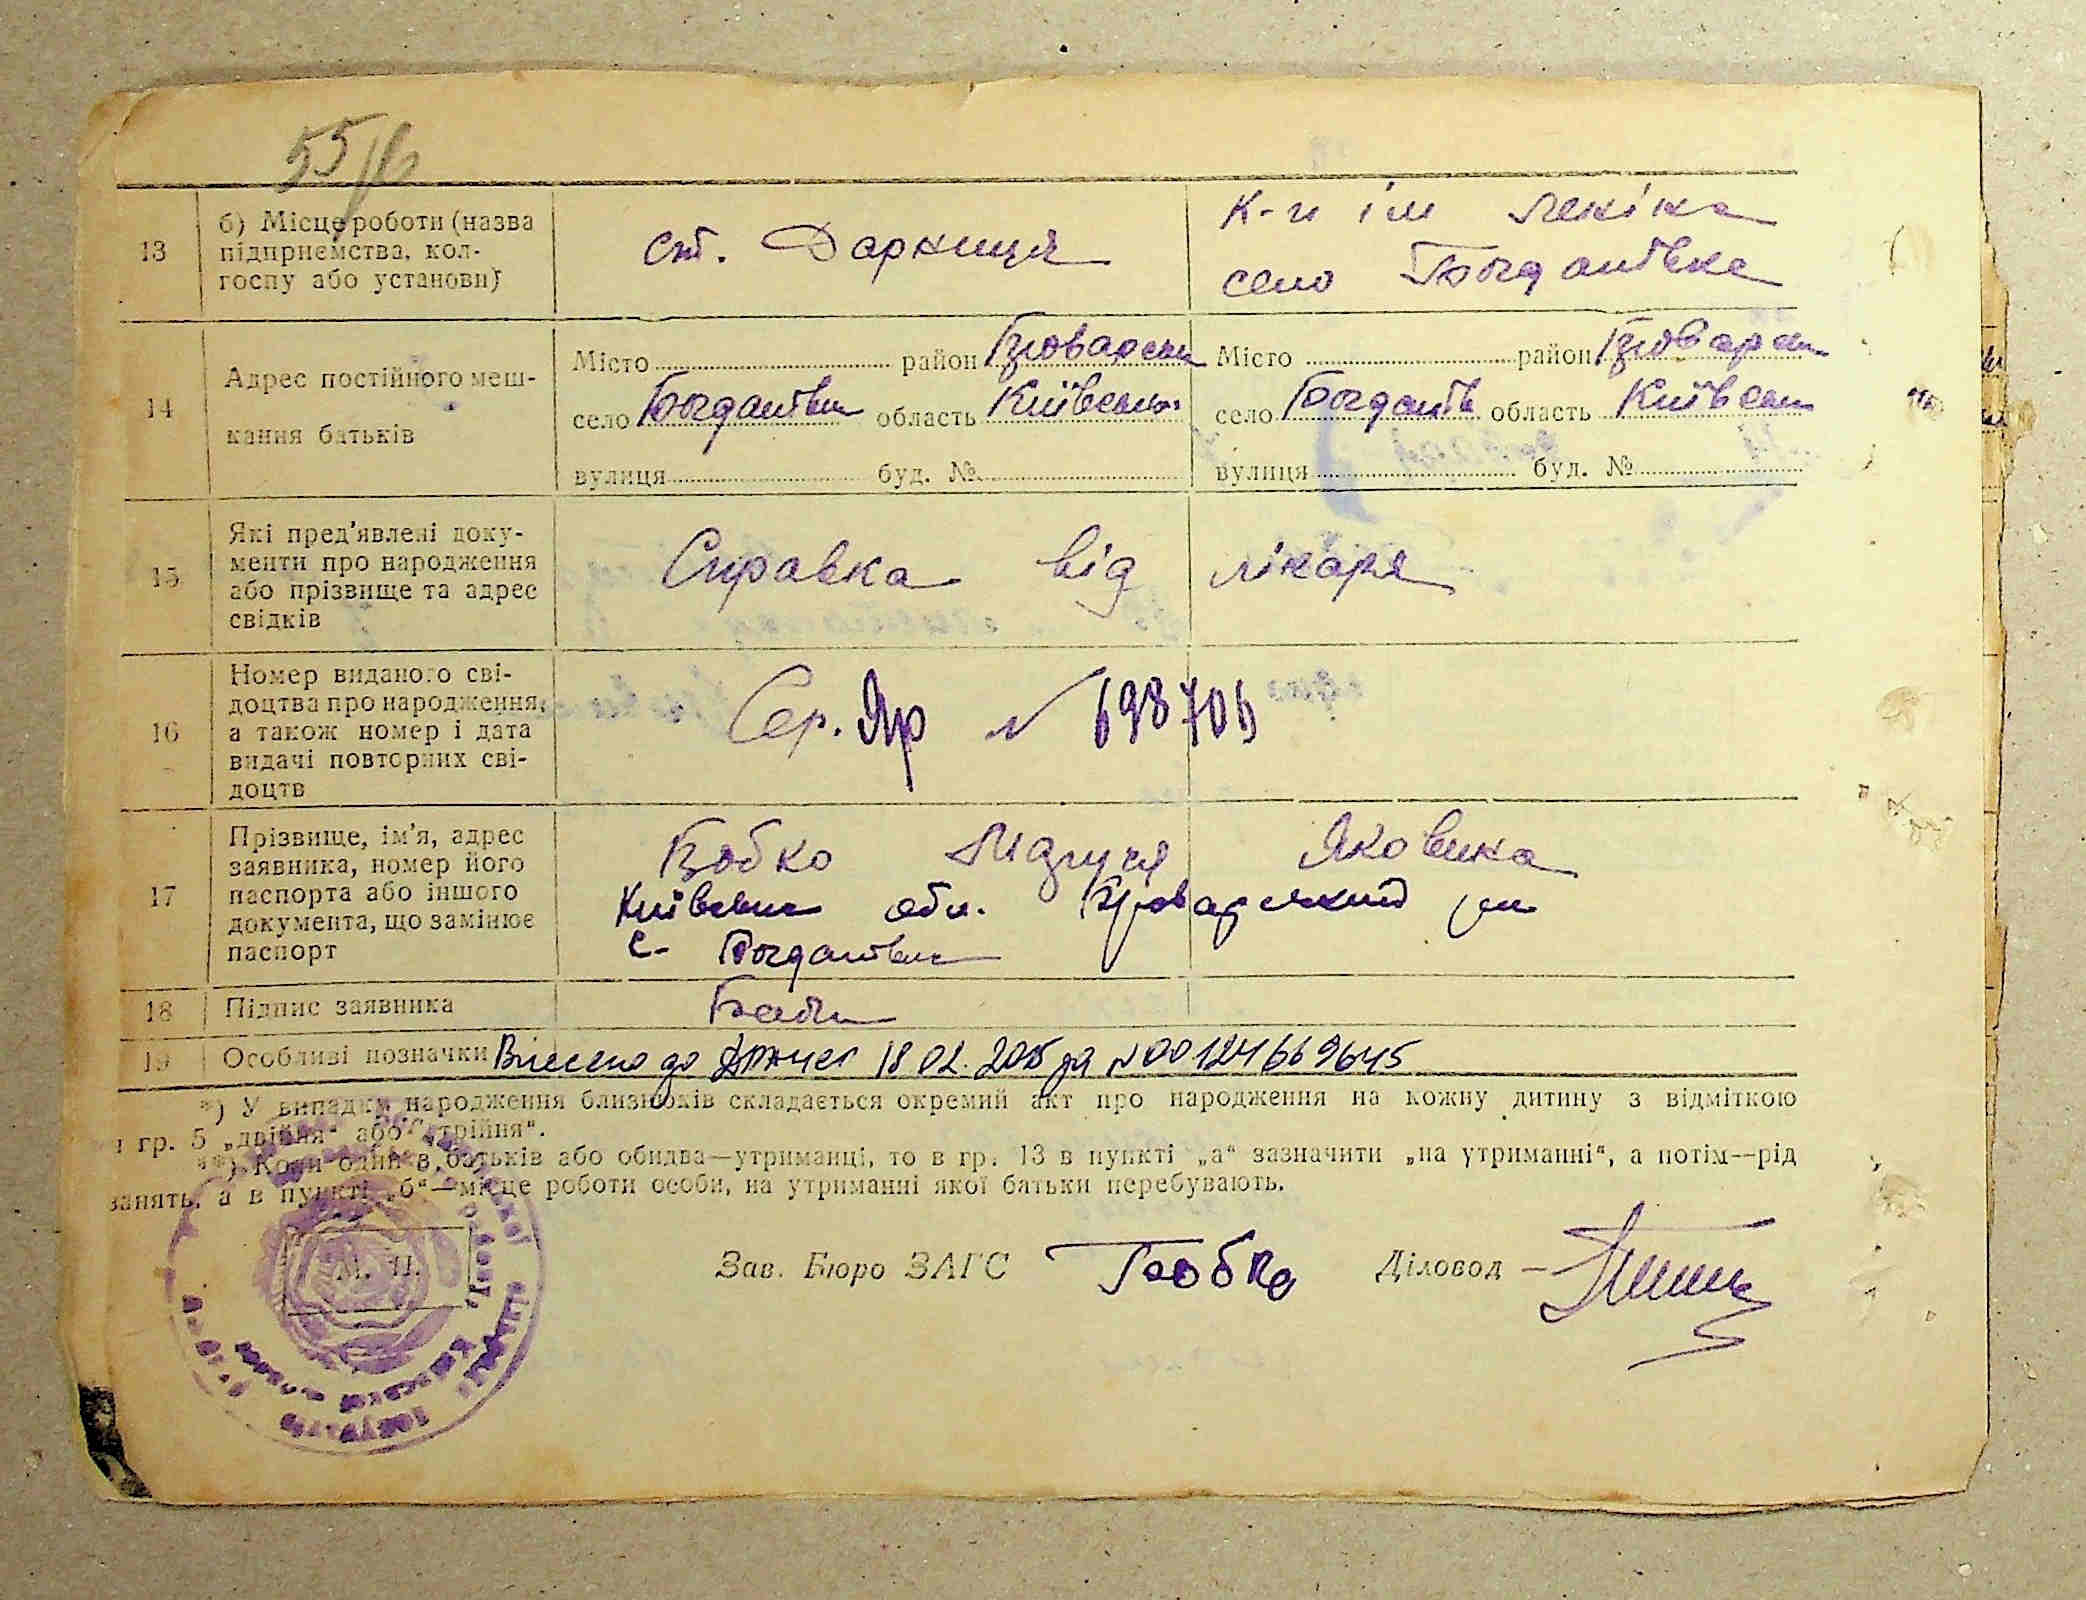 55
13 б) Місце роботи (назва
підприємства, кол-
госпу або установи)
ст. Дарниця
к-п ім Леніна
село Богданівка
14 Адрес постійного меш-
кання батьків
Місто район Броварськ
село Богданівка область Київська
вулиця буд. №
Місто район Броварськ
село Богданів область Київськ
вулиця буд. №
15 Які пред'явлені доку-
менти про народження
або прізвище та адрес
свідків
Справка від лікаря
16 Номер виданого сві-
доцтва про народження,
а також номер і дата
видачі повторних сві-
доцтв
Сер. Яр №
17 Прізвище, ім'я, адрес
заявника, номер його
паспорта або іншого
документа, що замінює
паспорт
Бобко Яковина
Київська обл. Броварський р-н
с. Богданівка
18 Підпис заявника
19 Особливі позначки Внесено до ДРАЦСГ 18.02. за №00124669645
*) У випадку народження близнюків складається окремий акт про народження на кожну дитину з відміткою
гр. 5 „двійня“ або „трійня“.
**) Коли один з батьків або обидва—утриманці, то в гр. 13 в пункті „а“ зазначити „на утриманні“, а потім—рід
занять, а в пункті „б“—місце роботи особи, на утриманні якої батьки перебувають.
М. П.
Зав. Бюро ЗАГС Бобко Діловод